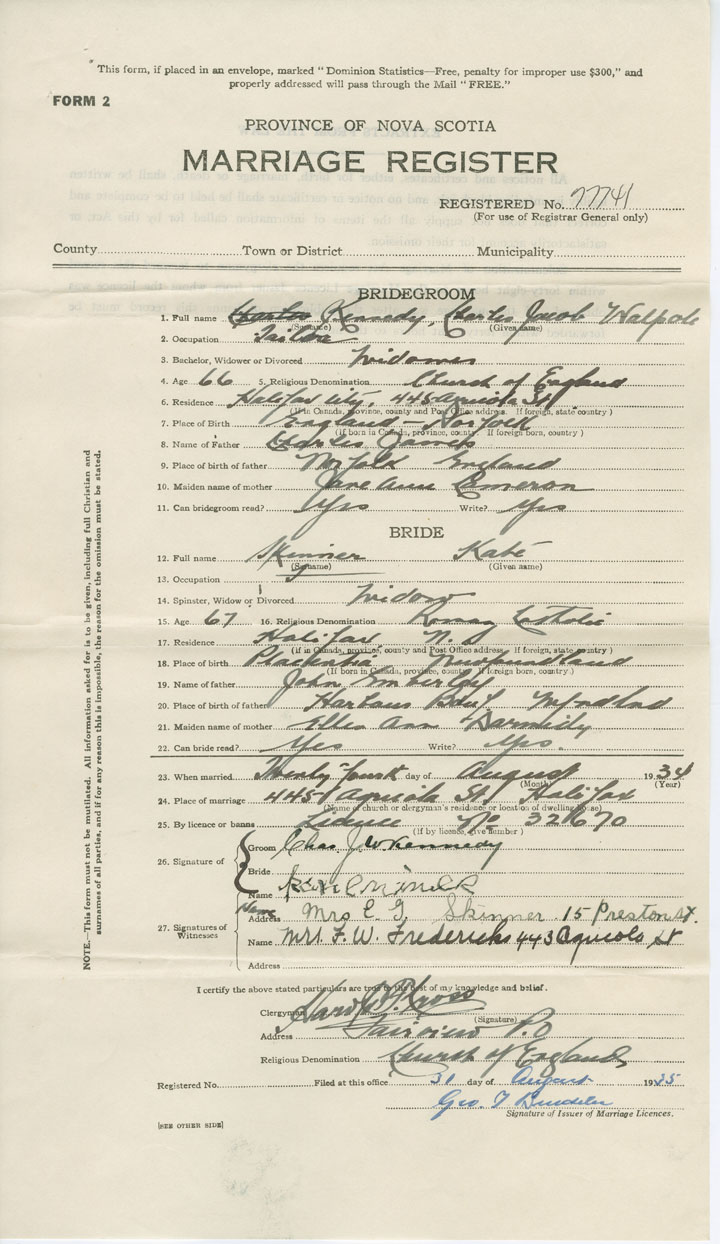 This form, if placed in an envelope, marked "Dominion Statistics—Free, penalty for improper use $300," and
properly addressed will pass through the Mail "FREE."
FORM 2
PROVINCE OF NOVA SCOTIA
MARRIAGE REGISTER
REGISTERED No. 77741
(For use of Registrar General only)
County Town or District Municipality
BRIDEGROOM
1. Full name Kennedy, Charles Jacob Walpole
(Surname) (Given name)
2. Occupation Tailor
3. Bachelor, Widower or Divorced Widower
4. Age 66 5. Religious Denomination Church of England
6. Residence Halifax City, 445 Agricola St
(If in Canada, province, county and Post Office address. If foreign, state country)
7. Place of Birth England - Norfolk
(If born in Canada, province, county. If foreign born, country)
8. Name of Father Charles James
9. Place of birth of father Norfolk England
10. Maiden name of mother Jane Ann Emerson
11. Can bridegroom read? Yes Write? Yes
BRIDE
12. Full name Skinner Kate
(Surname) (Given name)
13. Occupation
14. Spinster, Widow or Divorced Widow
15. Age 67 16. Religious Denomination Roman Catholic
17. Residence Halifax N.S
(If in Canada, province, county and Post Office address. If foreign, state country)
18. Place of birth Placentia Newfoundland
(If born in Canada, province, county. If foreign born, country)
19. Name of father John Emberley
20. Place of birth of father Harbour Nfndlnd
21. Maiden name of mother Ellen Ann
22. Can bride read? Yes Write? Yes.
23. When married Twenty fourth day of August 1934
(Month) (Year)
24. Place of marriage 445 Agricola St, Halifax
(Name of church or clergyman's residence or location of dwelling house)
25. By licence or banns Licence No 32670
(If by licence, give number)
26. Signature of
Groom Chas. J W Kennedy
Bride
Name
27. Signatures of Witnesses
Name
Address Mrs E G Skinner 15 Preston St.
Name Mrs F. W. Fredericks 443 Agricola St
Address
I certify the above stated particulars are true to the best of my knowledge and belief.
Clergyman
(Signature)
Address Fairview P.O
Religious Denomination Church of England
Registered No. Filed at this office 31 day of August 1935
Geo. F
Signature of Issuer of Marriage Licences.
(SEE OTHER SIDE)
NOTE.—This form must not be mutilated. All information asked for is to be given, including full Christian and
surnames of all parties, and if for any reason this is impossible, the reason for the omission must be stated.